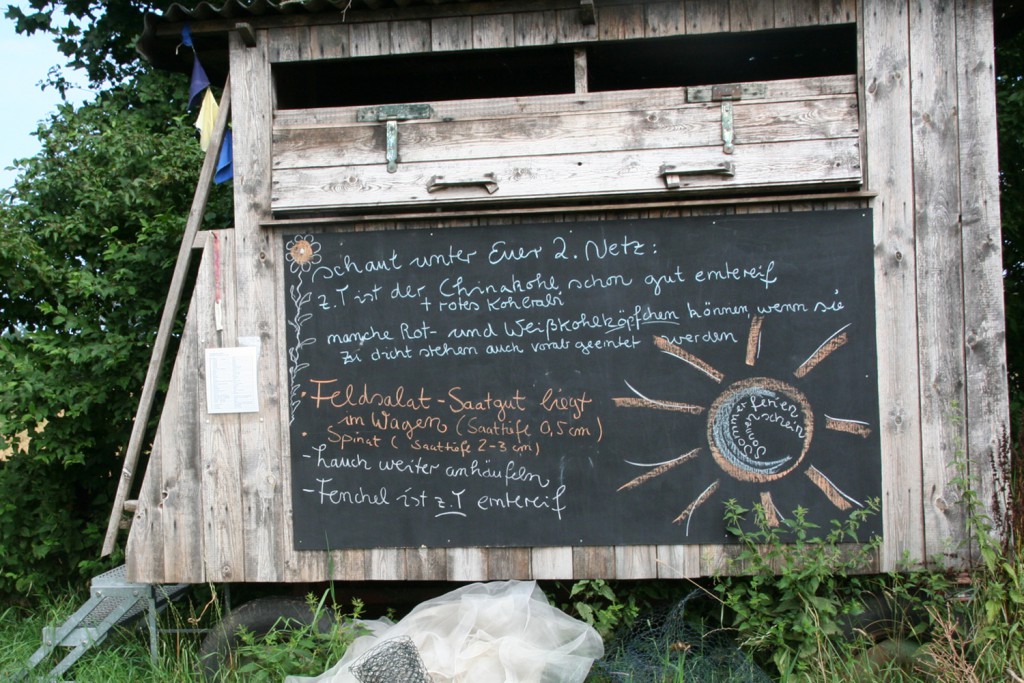 Schaut unter Euer 2. Netz:
z.T ist der Chinakohl schon gut erntereif
+ rotes Kohlrabi
manche Rot- und Weißkohlköpfchen können wenn sie
zu dicht stehen auch vorab geerntet werden
• Feldsalat-Saatgut liegt
im Wagen (Saattiefe 0,5 cm)
• Spinat (Saattiefe 2-3 cm)
- Lauch weiter anhäufeln
- Fenchel ist z.T erntereif
Sommerferien
Sonnenschein